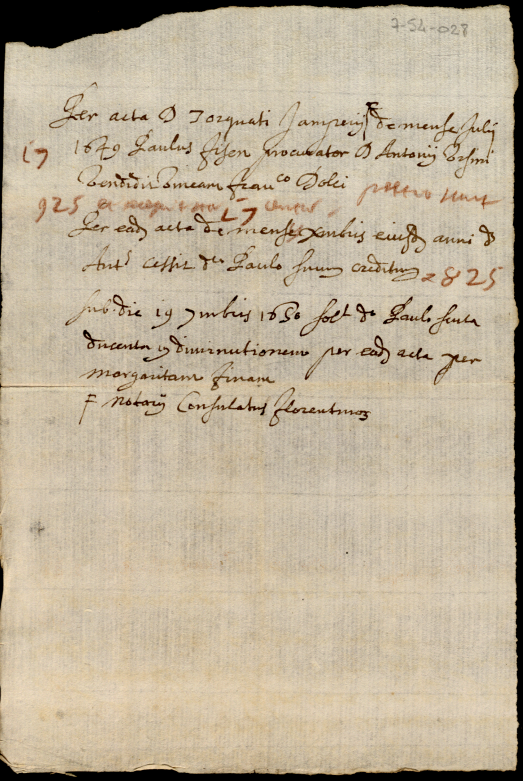 7-54-028
Per acta D Torquati Jamperij de mense Julij
17
1649 Paulus fisen procurator D Antonij Ursini
Vendidit Vineam franco Dolci
925 17
Per ead acta de mense Xmbris eiusd anni D
Ants cessit do Paulo suum creditum 825
sub die 19 7mbris 1650 solt do Paulo scuta
ducenta in diminutionem per ead acta per
Margaritam
F notarij Consulatus florentinor